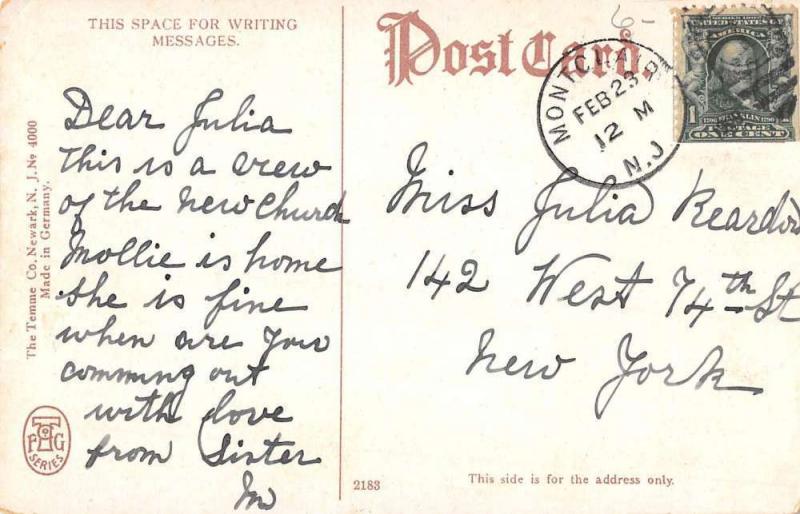 THIS SPACE FOR WRITING
MESSAGES.
Dear Julia
this is a view
of the new church
Mollie is home
she is fine
when are you
comming out
with love
from Sister
M
The Temme Co. Newark, N. J. No 4000
Made in Germany.
F G
SERIES
2183
Post Card.
MONTCLAIR
FEB 23
12 M
N.J
SERIES 1902
AMERICA
1
FRANKLIN
POSTAGE
ONE CENT
Miss Julia Reardon
142 West 74th St
New York
This side is for the address only.